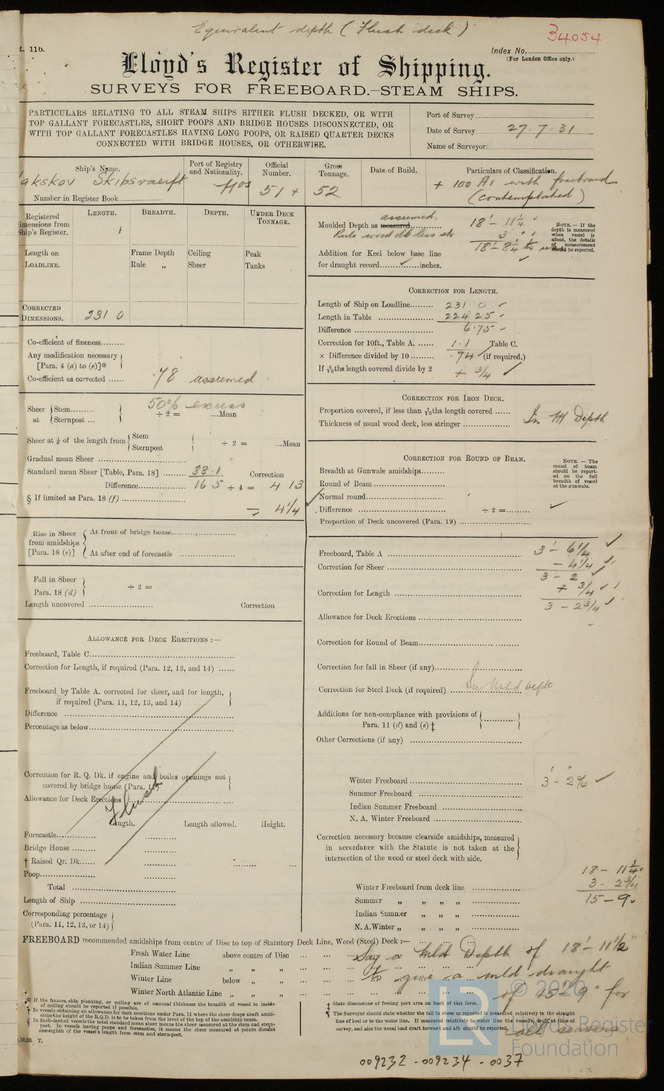 Equivalent depth (Flush deck)
34054
t. 11b.
Index No.
(For London Office only.)
Lloyd's Register of Shipping.
SURVEYS FOR FREEBOARD.—STEAM SHIPS.
PARTICULARS RELATING TO ALL STEAM SHIPS EITHER FLUSH DECKED, OR WITH
TOP GALLANT FORECASTLES, SHORT POOPS AND BRIDGE HOUSES DISCONNECTED, OR
WITH TOP GALLANT FORECASTLES HAVING LONG POOPS, OR RAISED QUARTER DECKS
CONNECTED WITH BRIDGE HOUSES, OR OTHERWISE.
Port of Survey
Date of Survey 27.7.31
Name of Surveyor
Ship's Name.
Port of Registry and Nationality.
Official Number.
Gross Tonnage.
Date of Build.
Particulars of Classification.
akskov Skibsvaerft
Nos 51 + 52
+ 100 A1 with freeboard
(contemplated)
Number in Register Book
Registered dimensions from Ship's Register.
LENGTH.
BREADTH.
DEPTH.
UNDER DECK TONNAGE.
Length on LOADLINE.
Frame Depth
Rule "
Ceiling
Sheer
Peak
Tanks
CORRECTED DIMENSIONS.
231 0
Moulded Depth as measured assumed 18' - 11½"
NOTE.—If the depth is measured when vessel is afloat, the details of measurement should be reported.
Addition for Keel below base line
for draught record inches.
CORRECTION FOR LENGTH.
Length of Ship on Loadline 231 0
Length in Table 224.25
Difference 6.75
Correction for 10ft., Table A. 1.1 Table C.
× Difference divided by 10 .74 (if required.)
If 6/10ths length covered divide by 2 + ¾
Co-efficient of fineness
Any modification necessary
[Para. 4 (d) to (e)]*
Co-efficient as corrected .78 assumed
50% excess
Sheer at { Stem
Sternpost } ÷ 2 = Mean
Sheer at ⅛ of the length from { Stem
Sternpost } ÷ 2 = Mean
Gradual mean Sheer
Standard mean Sheer [Table, Para. 18] 33.1
Correction
Difference 16 5 ÷ 4 = 4 13
§ If limited as Para. 18 (f) = 4¼
CORRECTION FOR IRON DECK.
Proportion covered, if less than 7/10ths length covered
Thickness of usual wood deck, less stringer
In M Depth
CORRECTION FOR ROUND OF BEAM.
Breadth at Gunwale amidships
Round of Beam
Normal round
Difference ÷ 2 =
Proportion of Deck uncovered (Para. 19)
NOTE. — The round of beam should be reported on the full breadth of vessel at the gunwale.
Rise in Sheer from amidships [Para. 18 (e)]
At front of bridge house
At after end of forecastle
Fall in Sheer Para. 18 (d) ÷ 2 =
Length uncovered Correction
Freeboard, Table A 3 - 6¼
Correction for Sheer - 4¼
3 - 2
Correction for Length + ¾
3 - 2¾
Allowance for Deck Erections
Correction for Round of Beam
Correction for fall in Sheer (if any)
Correction for Steel Deck (if required) In Mld Depth
Additions for non-compliance with provisions of
Para. 11 (d) and (e) ‡
Other Corrections (if any)
ALLOWANCE FOR DECK ERECTIONS :—
Freeboard, Table C
Correction for Length, if required (Para. 12, 13, and 14)
Freeboard by Table A. corrected for sheer, and for length,
if required (Para. 11, 12, 13, and 14)
Difference
Percentage as below
Correction for R. Q. Dk. if engine and boiler openings not
covered by bridge house (Para.
Allowance for Deck Erections
Flush
Length. Length allowed. Height.
Forecastle
Bridge House
† Raised Qr. Dk.
Poop
Total
Length of Ship
Corresponding percentage
(Para. 11, 12, 13, or 14)
Winter Freeboard 3 - 2¾
Summer Freeboard
Indian Summer Freeboard
N. A. Winter Freeboard
Correction necessary because clearside amidships, measured
in accordance with the Statute is not taken at the
intersection of the wood or steel deck with side.
18 - 11¾
3 - 2¾
15 - 9
Winter Freeboard from deck line
Summer " " "
Indian Summer " " "
N.A. Winter " " "
FREEBOARD recommended amidships from centre of Disc to top of Statutory Deck Line, Wood (Steel) Deck :—
Fresh Water Line above centre of Disc
Indian Summer Line " "
Winter Line below "
Winter North Atlantic Line " "
Say a Mld Depth of 18' - 11½"
to give a mld draught
of 15' 9" for
© 2020
Lloyd's Register
Foundation
009232 - 009234 - 0037